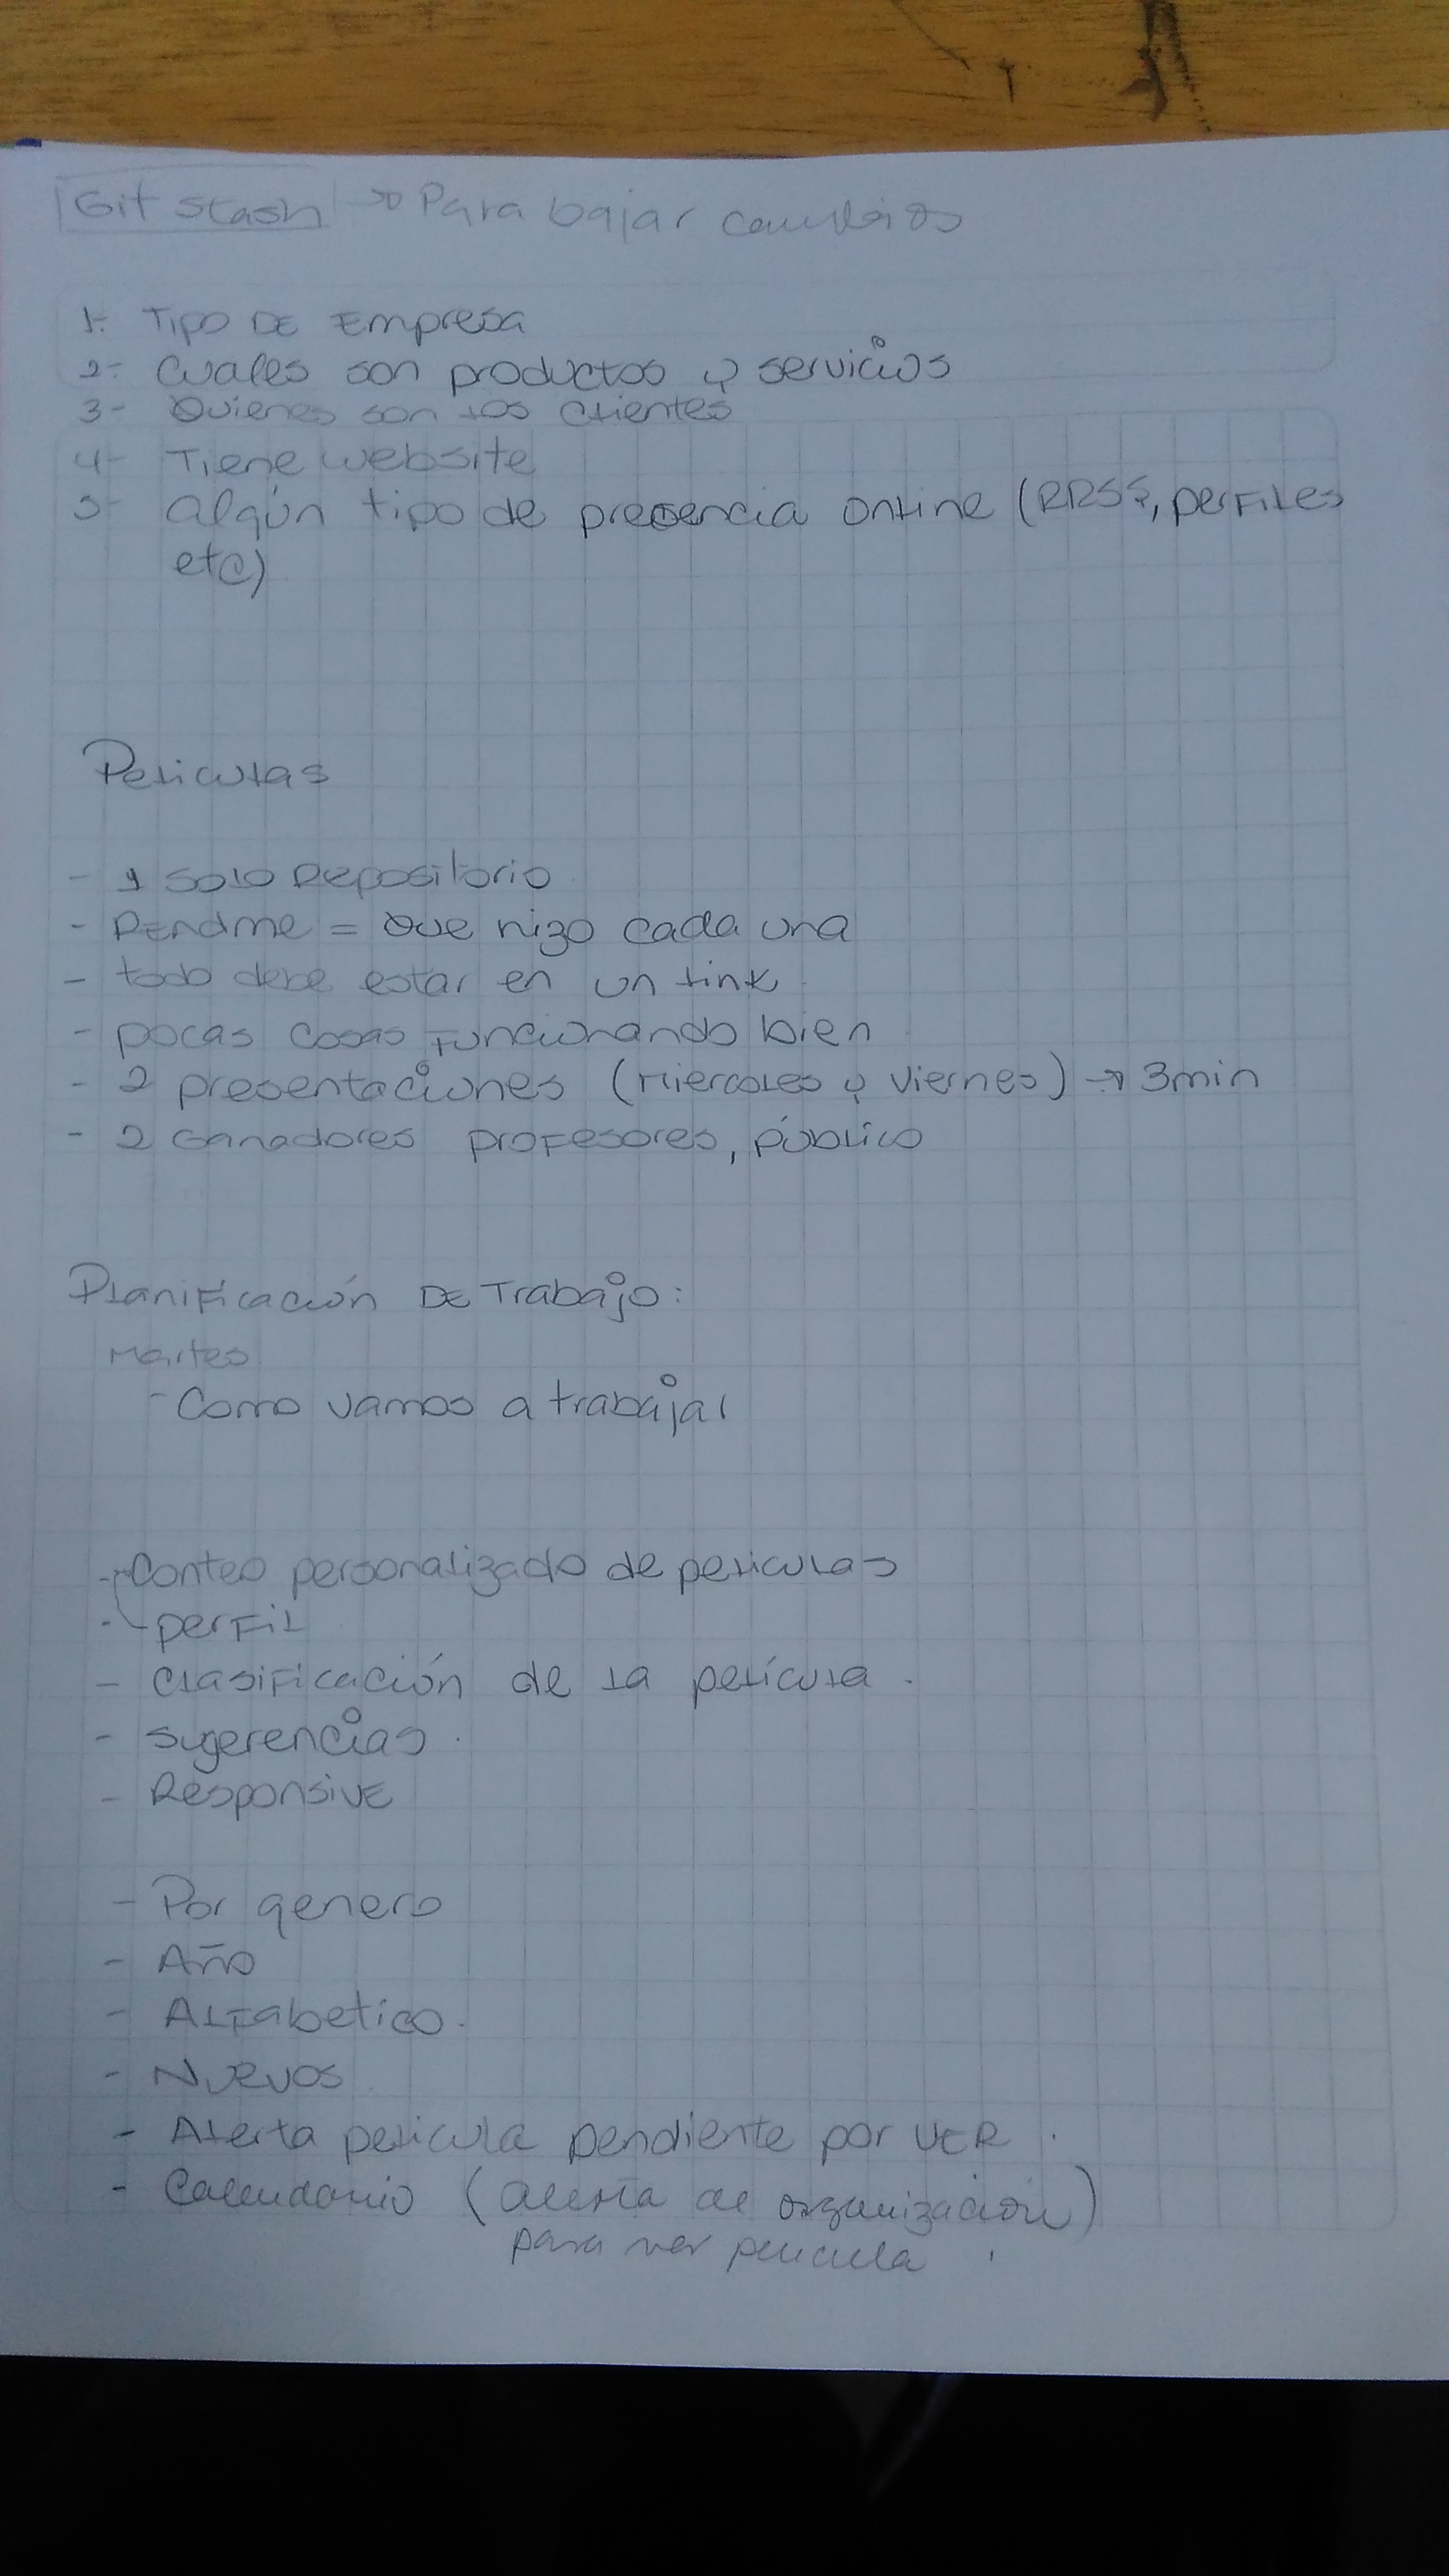 Git stash → Para bajar cambios
1- Tipo DE Empresa
2- Cuales son productos y servicios
3- Quienes son los clientes
4- Tiene website
5- Algún tipo de presencia online (RRSS, perfiles
etc)
Peliculas
- 1 solo Repositorio
- Readme = Que hizo cada una
- todo debe estar en un link
- pocas cosas funcionando bien
- 2 presentaciones (Miercoles y Viernes) → 3min
- 2 Ganadores profesores, público
Planificación DE Trabajo:
Martes
- Como vamos a trabajar
- Conteo personalizado de peliculas
- perfil
- Clasificación de la película.
- sugerencias.
- Responsive
- Por genero
- Año
- Alfabetico.
- Nuevos
- Alerta pelicula pendiente por VER.
- Calendario (alerta de organización)
para ver pelicula.